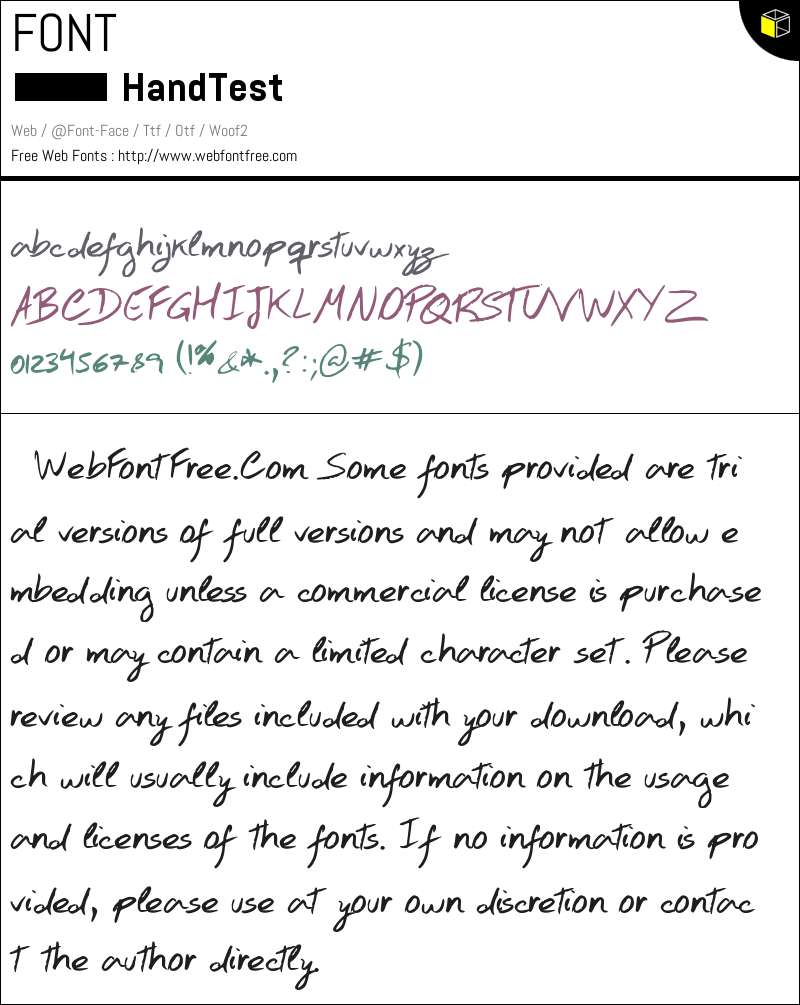 FONT
HandTest
Web / @Font-Face / Ttf / Otf / Woof2
Free Web Fonts : http://www.webfontfree.com
abcdefghijklmnopqrstuvwxyz
ABCDEFGHIJKLMNOPQRSTUVWXYZ
0123456789 (!%&*.,?:;@#$)
WebFontFree.Com Some fonts provided are tri
al versions of full versions and may not allow e
mbedding unless a commercial license is purchase
d or may contain a limited character set. Please
review any files included with your download, whi
ch will usually include information on the usage
and licenses of the fonts. If no information is pro
vided, please use at your own discretion or contac
t the author directly.